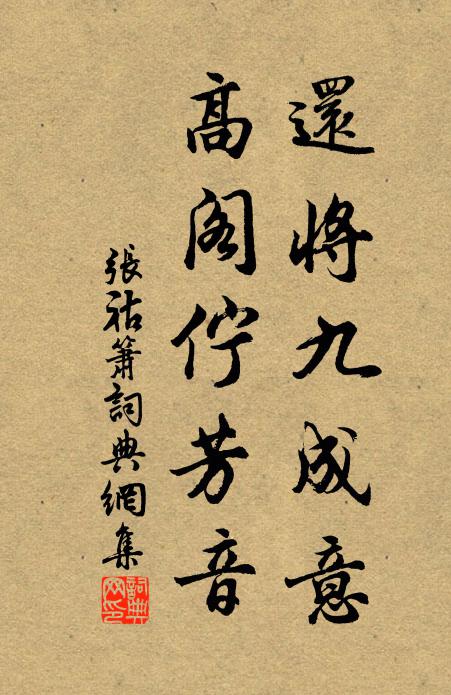 還將九成意
高閣佇芳音
張祜簫詞典網集
詞典网印